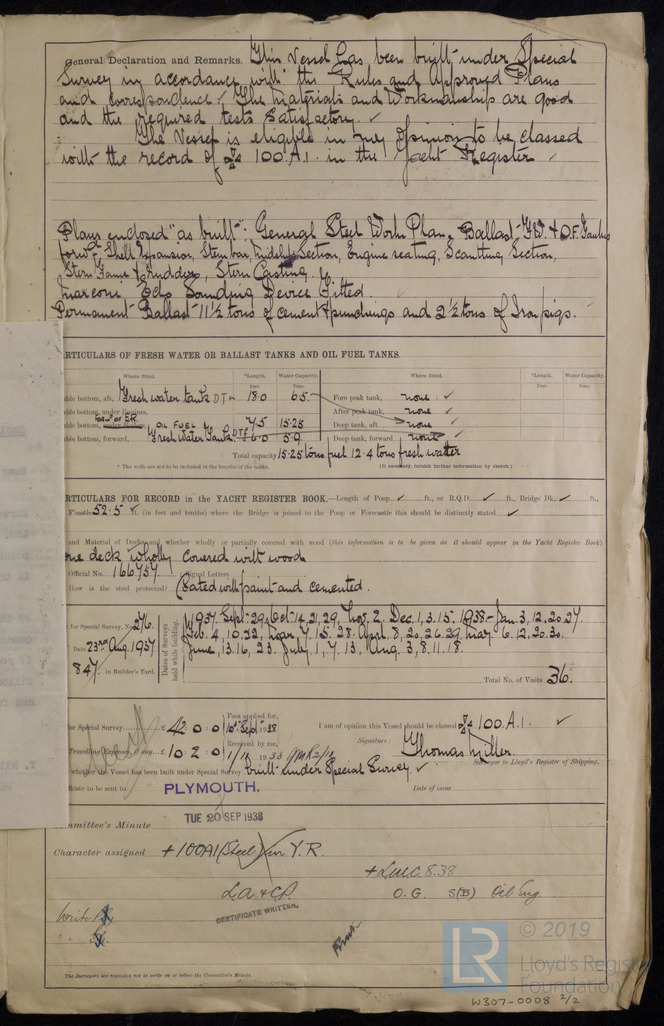 General Declaration and Remarks. This Vessel has been built under Special
Survey in accordance with the Rules and approved Plans
and correspondence. The materials and workmanship are good
and the required tests satisfactory. ✓
The Vessel is eligible in my opinion to be classed
with the record of 100 A.1. in the Yacht Register ✓
Plans enclosed "as built": General Steel Work Plan, Ballast F.W. & O.F.
Shell Expansion, Stem bar, Midship Section, Engine seating, Scantling Section,
Stern Frame & Rudder, Stern Casting.
Marconi Echo Sounding Device Fitted.
Permanent Ballast 11½ tons of cement & punchings and 2½ tons of Iron pigs.
ARTICULARS OF FRESH WATER OR BALLAST TANKS AND OIL FUEL TANKS.
Where fitted. *Length. Water Capacity. Where fitted. *Length. Water Capacity.
Feet. Tons. Feet. Tons.
ble bottom, aft, Fresh water tank 18.0 6.5 Fore peak tank, none ✓
ble bottom, under Engines, After peak tank, none ✓
ble bottom, OIL FUEL 7.5 15.25 Deep tank, aft none ✓
ble bottom, forward, Fresh Water Tank 6.0 5.9 Deep tank, forward none ✓
Total capacity 15.25 tons fuel 12.4 tons fresh water
* The wells are not to be included in the lengths of the tanks. (If necessary, furnish further information by sketch.)
ARTICULARS FOR RECORD in the YACHT REGISTER BOOK.—Length of Poop ✓ ft., or R.Q.D. ✓ ft., Bridge Dk. ✓ ft.,
F'castle 52.5 ft. (in feet and tenths) where the Bridge is joined to the Poop or Forecastle this should be distinctly stated ✓
and Material of Decks and whether wholly or partially covered with wood (this information is to be given as it should appear in the Yacht Register Book)
one deck wholly covered with wood
Official No. 166757. Signal Letters
How is the steel protected? Coated with paint and cemented.
for Special Survey, No. 276.
Date 23rd Aug. 1937
847. in Builder's Yard.
Dates of Surveys held while building.
1937. Sept. 29, Oct. 14, 21, 29, Nov. 2, Dec. 1, 3, 15, 1938- Jan. 3, 12, 20, 27.
Feb. 4, 10, 22, Mar. 7, 15, 28. April. 8, 20, 26, 29, May. 6, 12, 20, 30.
June, 13, 16, 23. July, 1, 7, 13, Aug. 3, 8, 11, 18.
Total No. of Visits 36.
for Special Survey £ 42 . 0 . 0 Fees applied for, 10th Sept. 1938
I am of opinion this Vessel should be classed 100. A.1. ✓
Travelling Expenses, if any £ 10 . 2 . 0 Received by me,
Signature: Thomas Miller.
Surveyor to Lloyd's Register of Shipping.
whether the Vessel has been built under Special Survey built under Special Survey ✓
ficate to be sent to PLYMOUTH. Date of issue
TUE 20 SEP 1938
mmittee's Minute
Character assigned +100A1 (Steel) for Y.R.
+ LMC 8.38
L.A. & C.P. O.G. S(B) Oil Eng.
CERTIFICATE WRITTEN.
Write
The Surveyors are requested not to write on or below the Committee's Minute.
LR © 2019
Lloyd's Register
Foundation
W307-0008 2/2